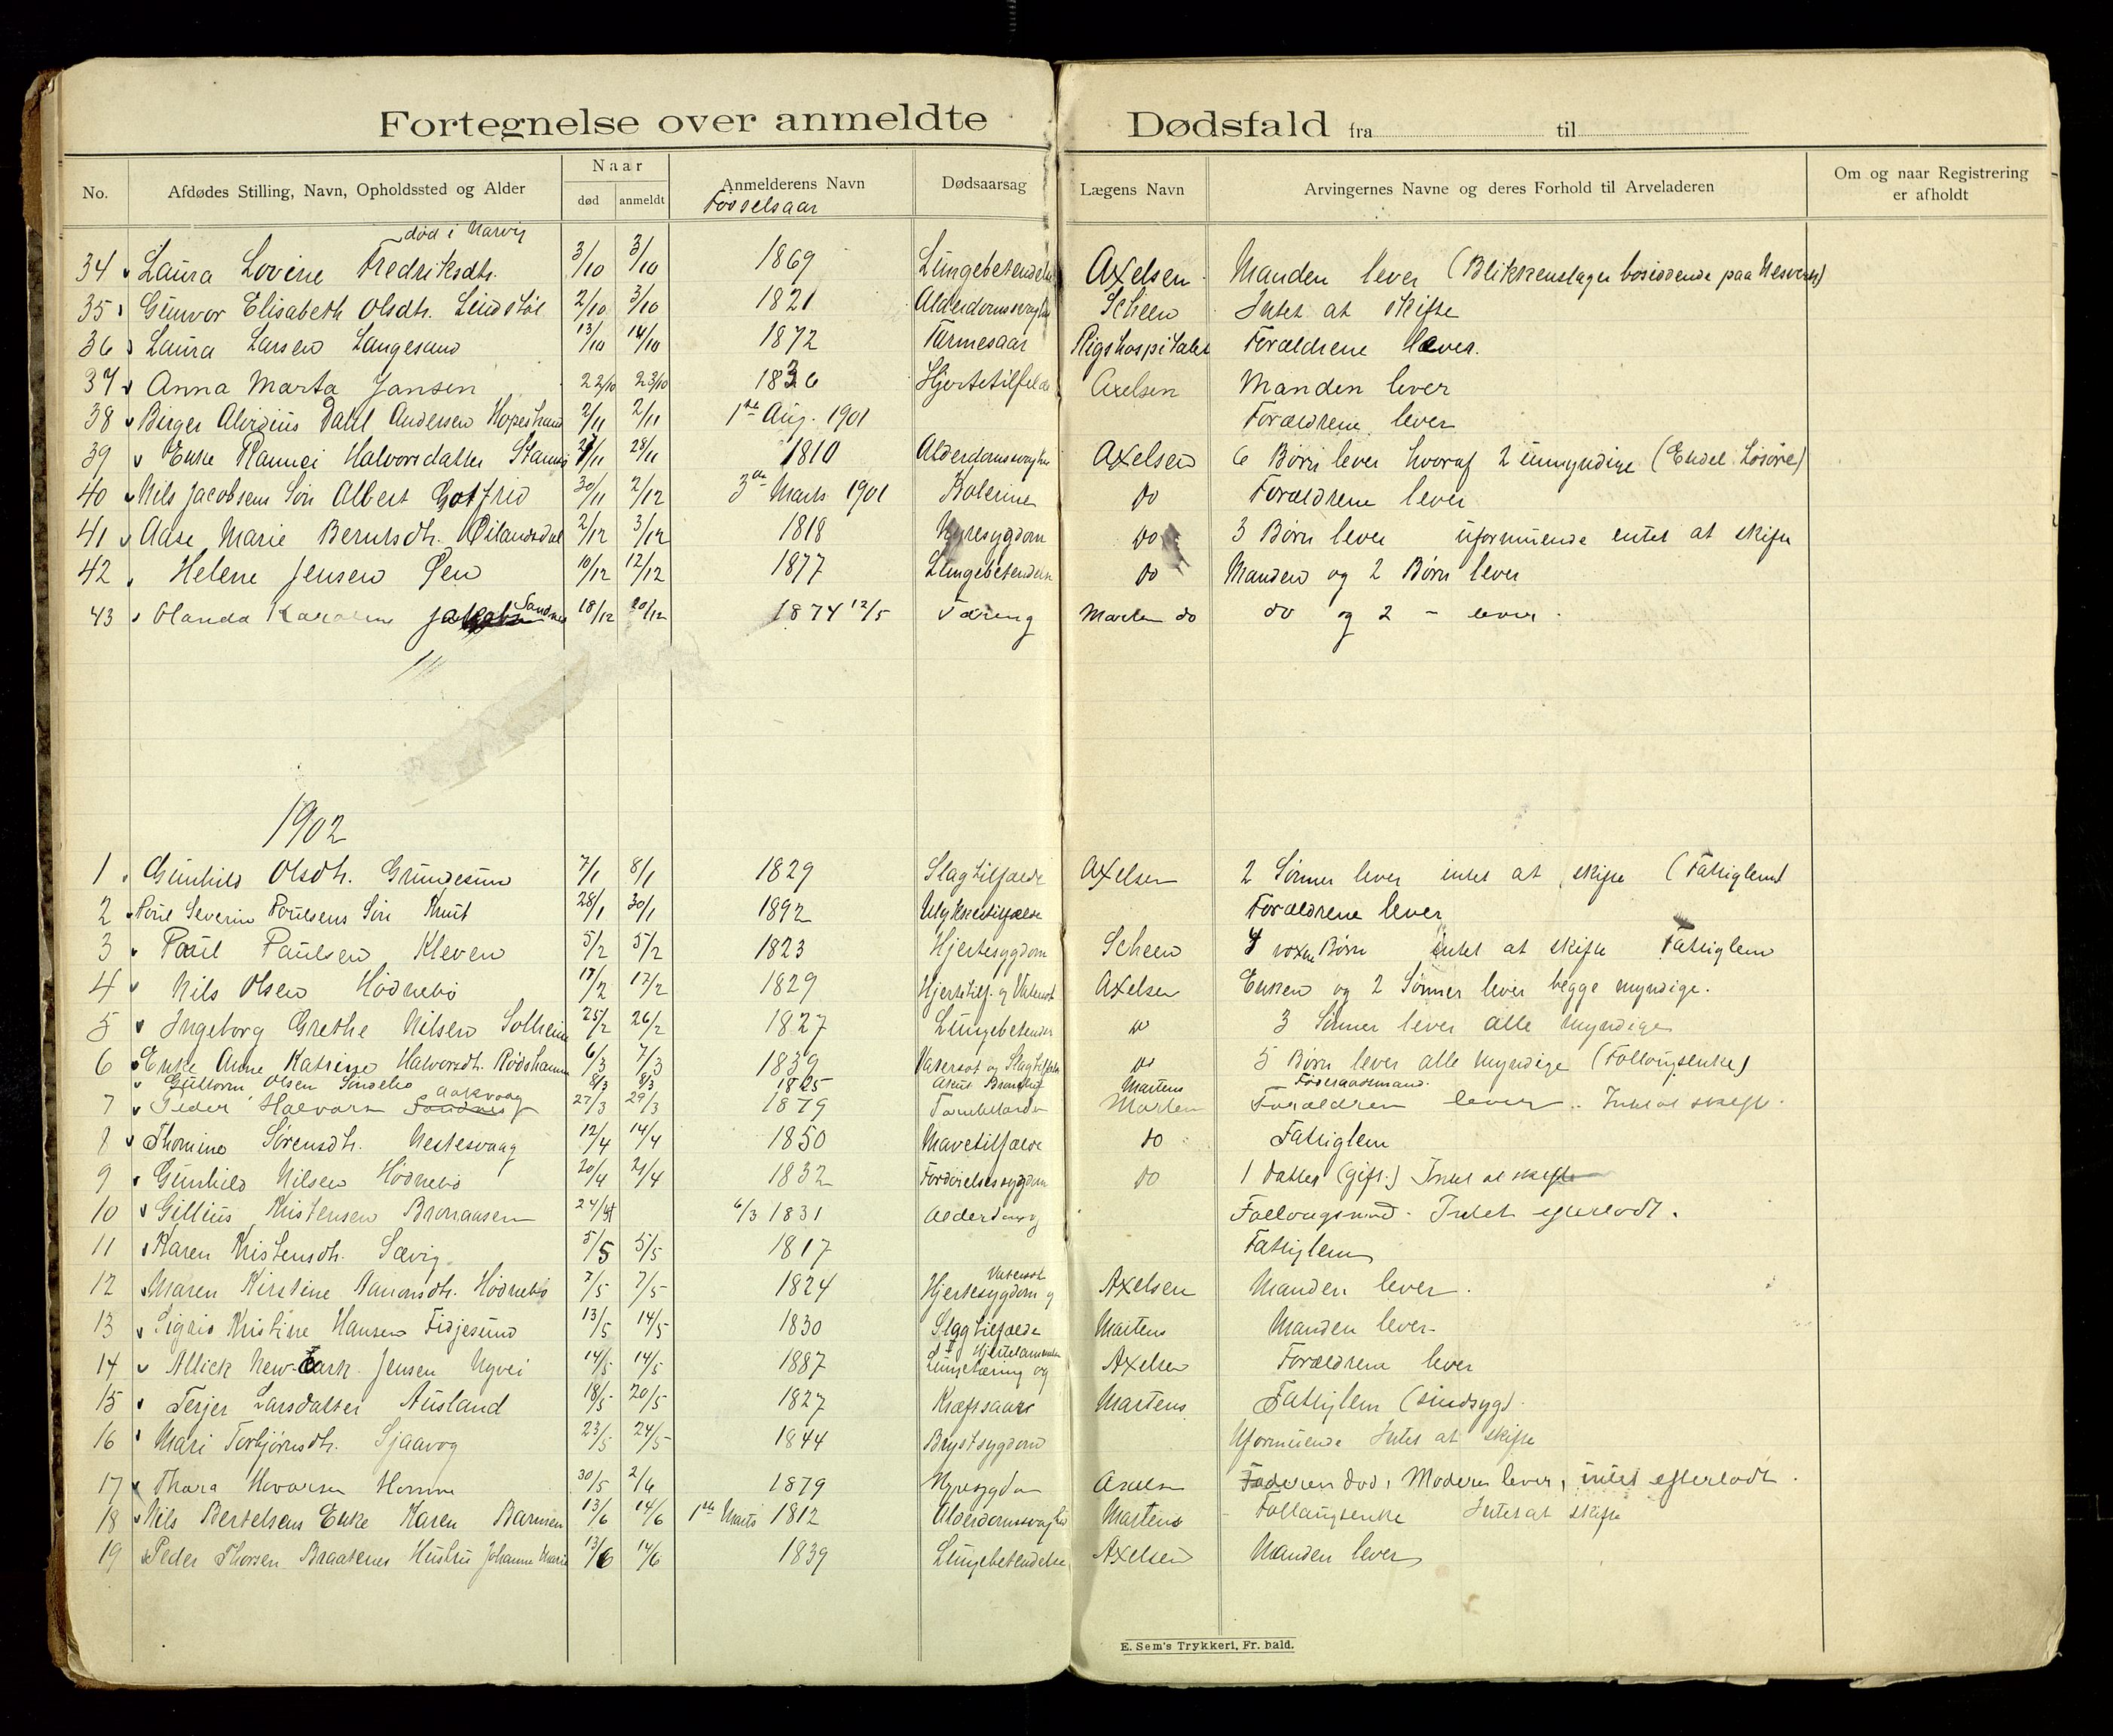 Fortegnelse over anmeldte Dødsfald fra til
No. Afdødes Stilling, Navn, Opholdssted og Alder Naar død anmeldt Anmelderens Navn Dødsaarsag Lægens Navn Arvingernes Navne og deres Forhold til Arveladeren Om og naar Registrering er afholdt
Fødselsaar
død i Narvig
34 Laura Lovine Fredriksdtr. 3/10 3/10 1869 Lungebetendelse Axelsen Manden lever (Blikkenslager bosiddende paa Nesverk)
35 Gunvor Elisabeth Olsdtr. Lindstøl 2/10 3/10 1821 Alderdomssvaghed Scheen Intet at skifte
36 Laura Larsen Langesand 13/10 14/10 1872 Tarmesaar Rigshospitalet Forældrene lever.
37 Anna Marta Jansen 22/10 23/10 1836 Hjertetilfelde Axelsen Manden lever
38 Birger Alvidius Dahl Andersen Hopestrand 2/11 2/11 1ste Aug. 1901 Forældrene lever
39 Enke Rannei Halvorsdatter 27/11 28/11 1810 Alderdomssvaghed Axelsen 6 Børn lever hvoraf 2 umyndige (Endel Løsøre)
40 Nils Jacobsens Søn Albert Gotfrid 30/11 2/12 3die Marts 1901 Kolerine do Forældrene lever
41 Aase Marie Berntsdtr. Øilandsdal 2/12 3/12 1818 Nyresygdom do 3 Børn lever uformuende intet at skifte
42 Helene Jensen Øen 10/12 12/12 1877 Lungebetendelse do Manden og 2 Børn lever
43 Olanda Karoline Sandnes 18/12 20/12 1874 12/5 Tæring Marten do do og 2 - lever.
1902
1 Gunhild Olsdtr. Grundesund 7/1 8/1 1829 Slagtilfælde Axelsen 2 Sønner lever intet at skifte (Fattiglem)
2 Poul Severin Poulsens Søn Knut 28/1 30/1 1892 Ulykkestilfælde Forældrene lever
3 Paul Paulsen Kleven 5/2 5/2 1823 Hjertesygdom Scheen 4 voxne Børn Intet at skifte Fattiglem
4 Nils Olsen Hødnebø 17/2 17/2 1829 Hjertetilf. og Vatersot Axelsen Enken og 2 Sønner lever begge myndige.
5 Ingeborg Grethe Nilsen Solheim 25/2 26/2 1827 Lungebetendelse do 3 Sønner lever alle myndige
6 Enke Anne Katrine Halvorsdtr. Rødshavn 6/3 7/3 1839 Vatersot og Slagtilfælde do 5 Børn lever alle myndige (Follougsenke)
Guttorm Olsen Lindebø 8/3 8/3 1825 Akut Bronkit Martens Føderaadsmand.
7 Peder Halvorsen Sandnes Aaskvaag 27/3 29/3 1879 Marten Forældrene lever. Intet at skifte.
8 Thomine Sørensdtr. Nestesvaag 12/4 14/4 1850 Mavetilfælde do Fattiglem
9 Gunhild Nilsen Hødnebø 20/4 21/4 1832 Fordøielsessygdom do 1 Datter (gift.) Intet at skifte
10 Gillius Kristensen Bronaasen 24/4 6/3 1831 Alderdomsv Follougsmand. Intet efterladt.
11 Karen Kristensdtr. Sævig 5/5 5/5 1817 Fattiglem
12 Maren Kirstine Aanonsdtr. Hødnebø 7/5 7/5 1824 Hjertesygdom og Vatersot Axelsen Manden lever.
13 Sigrid Kristine Hansen Fidjesund 13/5 14/5 1830 Slagtilfælde Martens Manden lever
14 Allick New-Eark Jensen Nyvei 14/5 14/5 1887 Lungetæring og Hjertelammelse Axelsen Forældrene lever
15 Terjer Larsdatter Ausland 18/5 20/5 1827 Kræftsaar Martens Fattiglem (sindsyg).
16 Mari Torbjørnsdtr. Sjaavog 23/5 24/5 1844 Brystsygdom Uformuende Intet at skifte
17 Thora Havorsen Homme 30/5 2/6 1879 Nyresygdom Axelsen Faderen død, Moderen lever, intet efterladt.
18 Nils Bertelsens Enke Karen Barmen 13/6 14/6 1ste Marts 1812 Alderdomssvaghed Martens Follaugsenke Intet at skifte
19 Peder Thorsen Braatenes Hustru Johanne Marie 13/6 14/6 1839 Lungebetendelse Axelsen Manden lever
E. Sem's Trykkeri, Fr. hald.